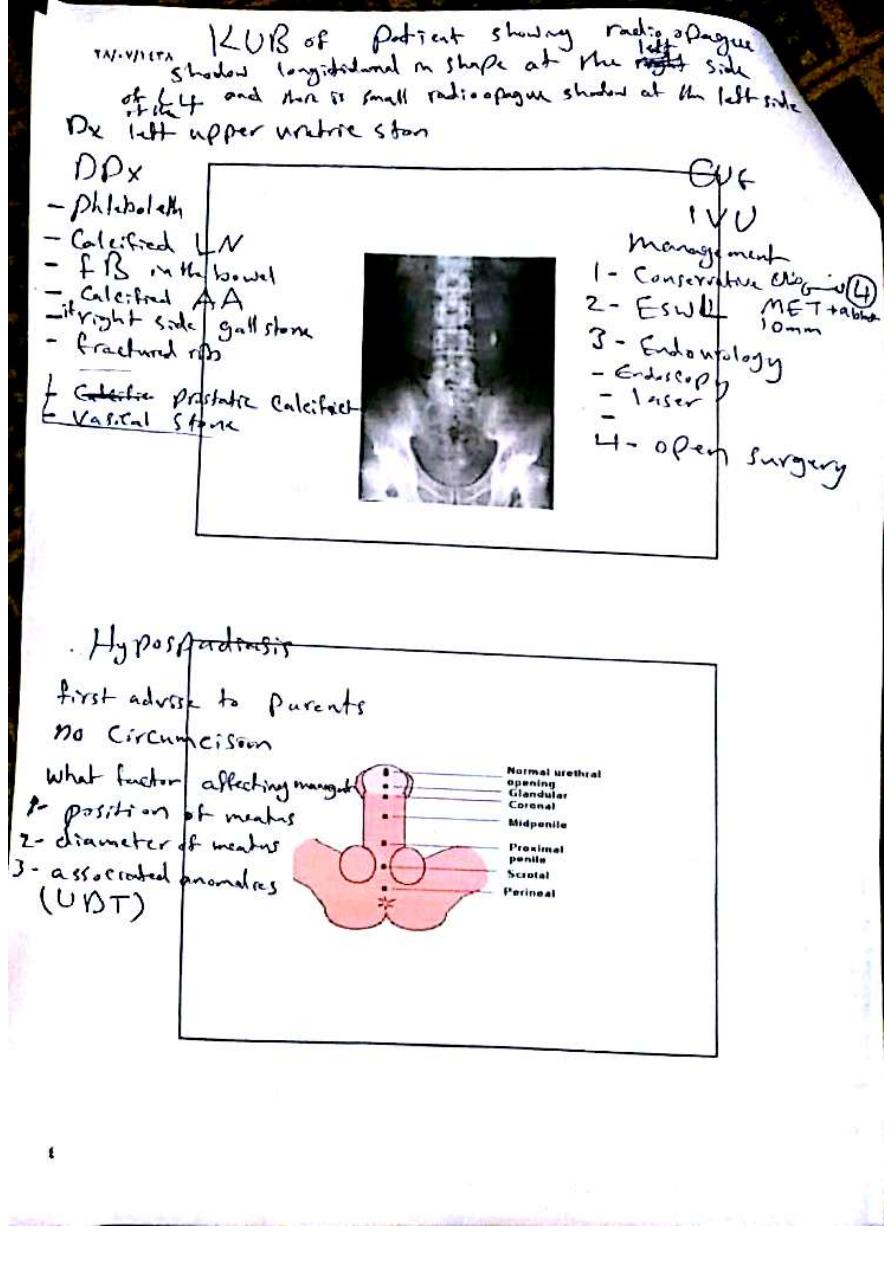 KUB of patient showing radio opague
٢٨/٠٧/١٤٣٨
shadow longitidunal in shape at the right left side
of L4 and ther is small radioopague shadow at the left side
of the
Dx left upper uretric ston
DDx
- phleboleth
- Calcified LN
- FB in the bowel
- Calcified AA
- if right side gall stone
- fractured rib
prostatic Calcificat
- Vasical stone
GUE
IVU
management
1- Conservative
4
MET +
2- ESWL
10mm
3- Endourology
- Endoscopy
- laser
-
4- open surgery
. Hypospadiasis
first advise to parents
no Circumcision
what factor affecting
1- position of meatus
2- diameter of meatus
3- associated anomalies
(UDT)
Normal urethral
opening
Glandular
Coronal
Midpenile
Proximal
penile
Scrotal
Perineal
٤